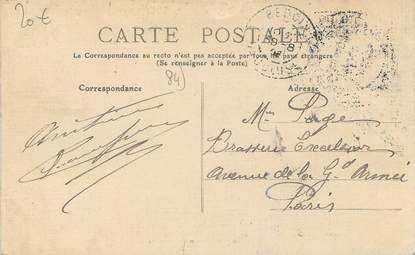 20€
CARTE POSTALE
BEDOIN
La Correspondance au recto n'est pas acceptée par tous les pays étrangers
(Se renseigner à la Poste)
84)
Correspondance
Amitiés
Adresse
Mme
Brasserie Excelsior
Avenue de la Gde Armée
Paris